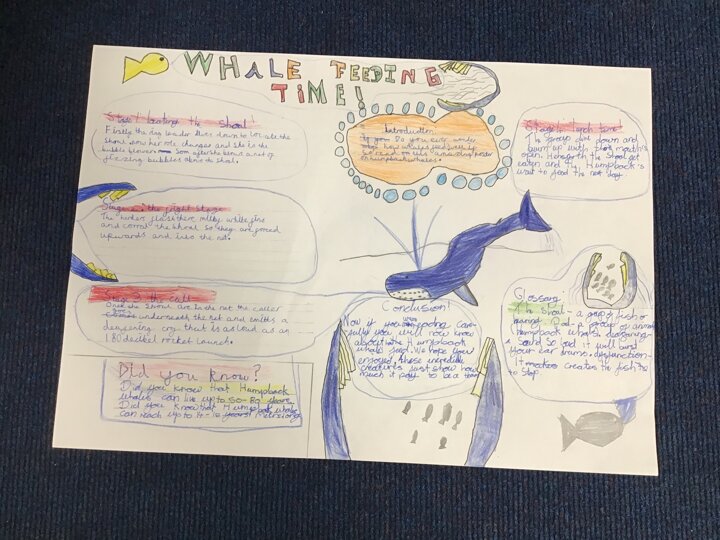 WHALE FEEDING
TIME!
Stage 1 locating the shoal!
Firstly the ring leader dives down to locate the
shoal. Now her role changes and she is the
bubble blower soon after she blows a net of
bubbles above the shoal.
Introduction
Do you ever wonder
how whales feed well
Stage 4: lunch time!
The groups dive down and
mouths
open. Hoards of the shoal get
eaten and Humpback's
wait to feed the next day.
Stage 2: the fight stage
The hunters flash there milky white fins
and corral the shoal so they are forced
upwards and into the net.
Stage 3 the call
Once the shoal are in the net the caller
goes underneath the net and emitts a
deafening cry that is as loud as an
180 decibel rocket launch.
Conclusion!
Now if you
fully you will now know
about the Humpback
whale feed. We hope you
enjoyed, these incredible
creatures just show how
much it pays to be a team
Glossary:
A shoal - a group of fish or
Pod - a group of animals
Humpback whales. deafening-
a sound so loud it will burst
your ear drums. disfunction-
it creates the fish
to stop
Did you Know?
Did you know that Humpback
whales can live up to 50-80 years.
Did you know that Humpback whales
can reach up to 14-